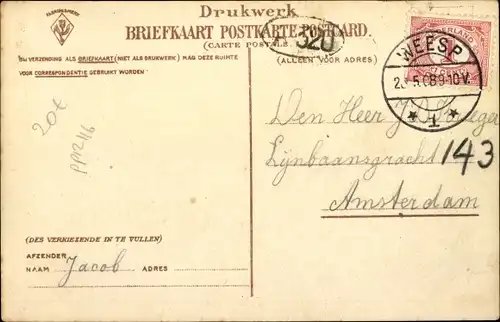 FABRIEKSMERK
Drukwerk
BRIEFKAART POSTKARTE POSTCARD.
(CARTE POSTALE)
320
BIJ VERZENDING ALS BRIEFKAART (NIET ALS DRUKWERK) MAG DEZE RUIMTE
VOOR CORRESPONDENTIE GEBRUIKT WORDEN
(ALLEEN VOOR ADRES)
WEESP
5.08 9-10V.
1
20x
Den Heer J. D.
Lijnbaansgracht 143
Amsterdam
(DES VERKIEZENDE IN TE VULLEN)
AFZENDER
NAAM Jacob ADRES